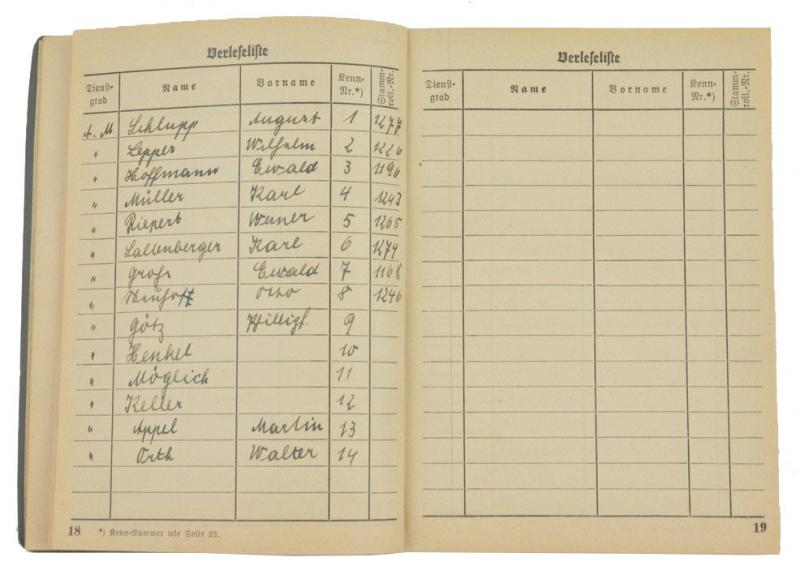 Verleseliste
Dienst-grad Name Vorname Kenn-Nr.*) Stamm-roll.-Nr.
A. M Schlupp August 1 1277
" Lepper Wilhelm 2 1226
" Hoffmann Ewald 3 1196
" Müller Karl 4 1243
" Riepert Werner 5 1265
" Karl 6 1274
" Groß Ewald 7 1168
" Neuhoff Otto 8 1246
" Götz 9
" Henkel 10
" Möglich 11
" Keller 12
" Appel Martin 13
" Orth Walter 14
18 *) Kenn-Nummer wie Seite 22.
Verleseliste
Dienst-grad Name Vorname Kenn-Nr.*) Stamm-roll.-Nr.
19